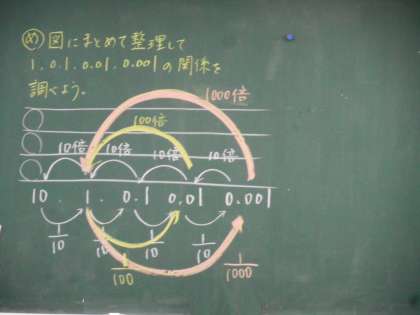 め 図にまとめて整理して
1、0.1、0.01、0.001の関係を
調べよう。
1000倍
100倍
10倍 10倍 10倍 10倍
10 1 0.1 0.01 0.001
1/10 1/10 1/10 1/10
1/100 1/1000